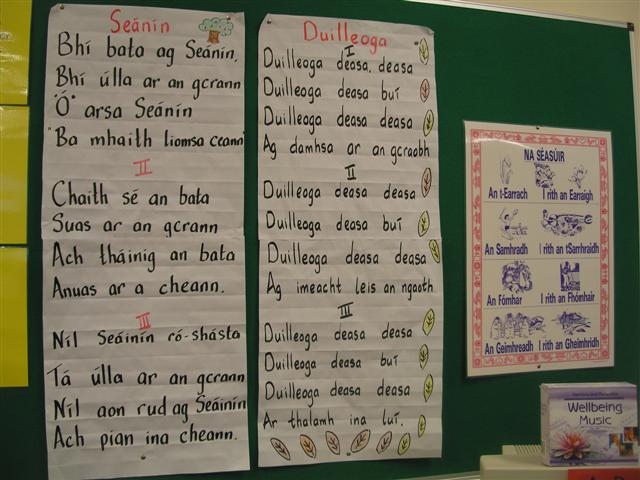 Seánín
Bhí bata ag Seánín,
Bhí úlla ar an gcrann
"Ó" arsa Seánín
"Ba mhaith liomsa ceann"
II
Chaith sé an bata
Suas ar an gcrann
Ach tháinig an bata
Anuas ar a cheann.
III
Níl Seáinín ró-shásta
Tá úlla ar an gcrann
Níl aon rud ag Seáinín
Ach pian ina cheann.
Duilleoga
I
Duilleoga deasa, deasa
Duilleoga deasa buí
Duilleoga deasa deasa
Ag damhsa ar an gcraobh
II
Duilleoga deasa deasa
Duilleoga deasa buí
Duilleoga deasa deasa
Ag imeacht leis an ngaoth
III
Duilleoga deasa deasa
Duilleoga deasa buí
Duilleoga deasa deasa
Ar thalamh ina luí.
NA SÉASÚIR
An t-Earrach I rith an Earraigh
An Samhradh I rith an tSamhraidh
An Fómhar I rith an Fhómhair
An Geimhreadh I rith an Gheimhridh
Wellbeing
Music